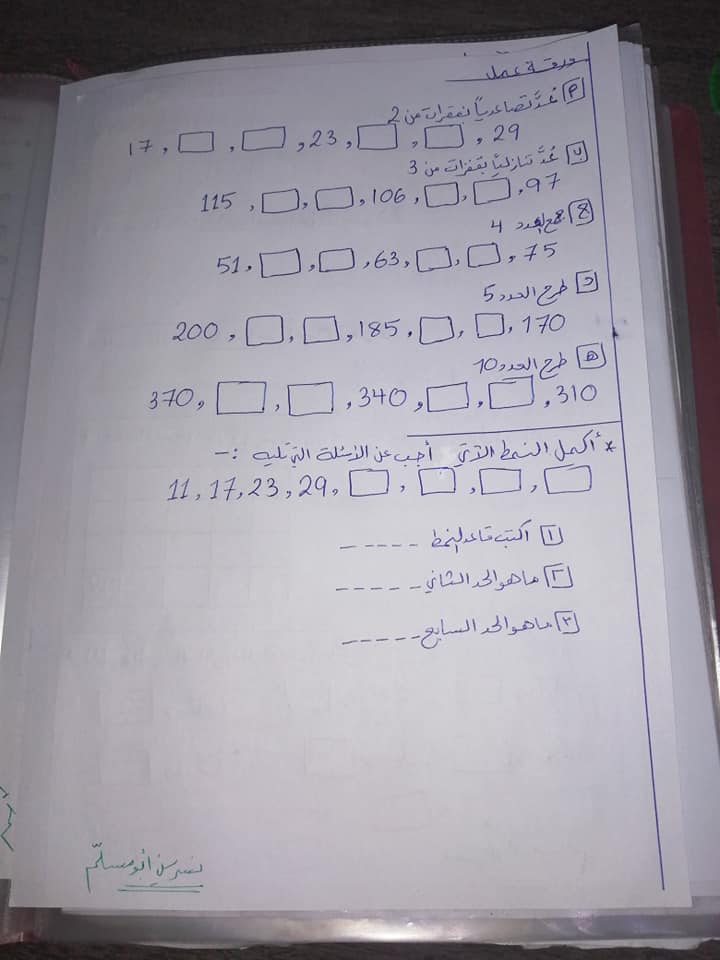 ورقة عمل
أ عُدَّ تصاعدياً بقفزات من 2
17, □, □, 23, □, □, 29
ب عُدَّ تنازلياً بقفزات من 3
115, □, □, 106, □, □, 97
ج جمع العدد 4
51, □, □, 63, □, □, 75
د طرح العدد 5
200, □, □, 185, □, □, 170
هـ طرح العدد 10
370, □, □, 340, □, □, 310
* أكمل النمط الآتي أجب عن الأسئلة التي تليه :-
11, 17, 23, 29, □, □, □, □
١ اكتب قاعدة النمط -----
٢ ما هو الحد الثاني -----
٣ ما هو الحد السابع -----
نسرين أبو مسلّم